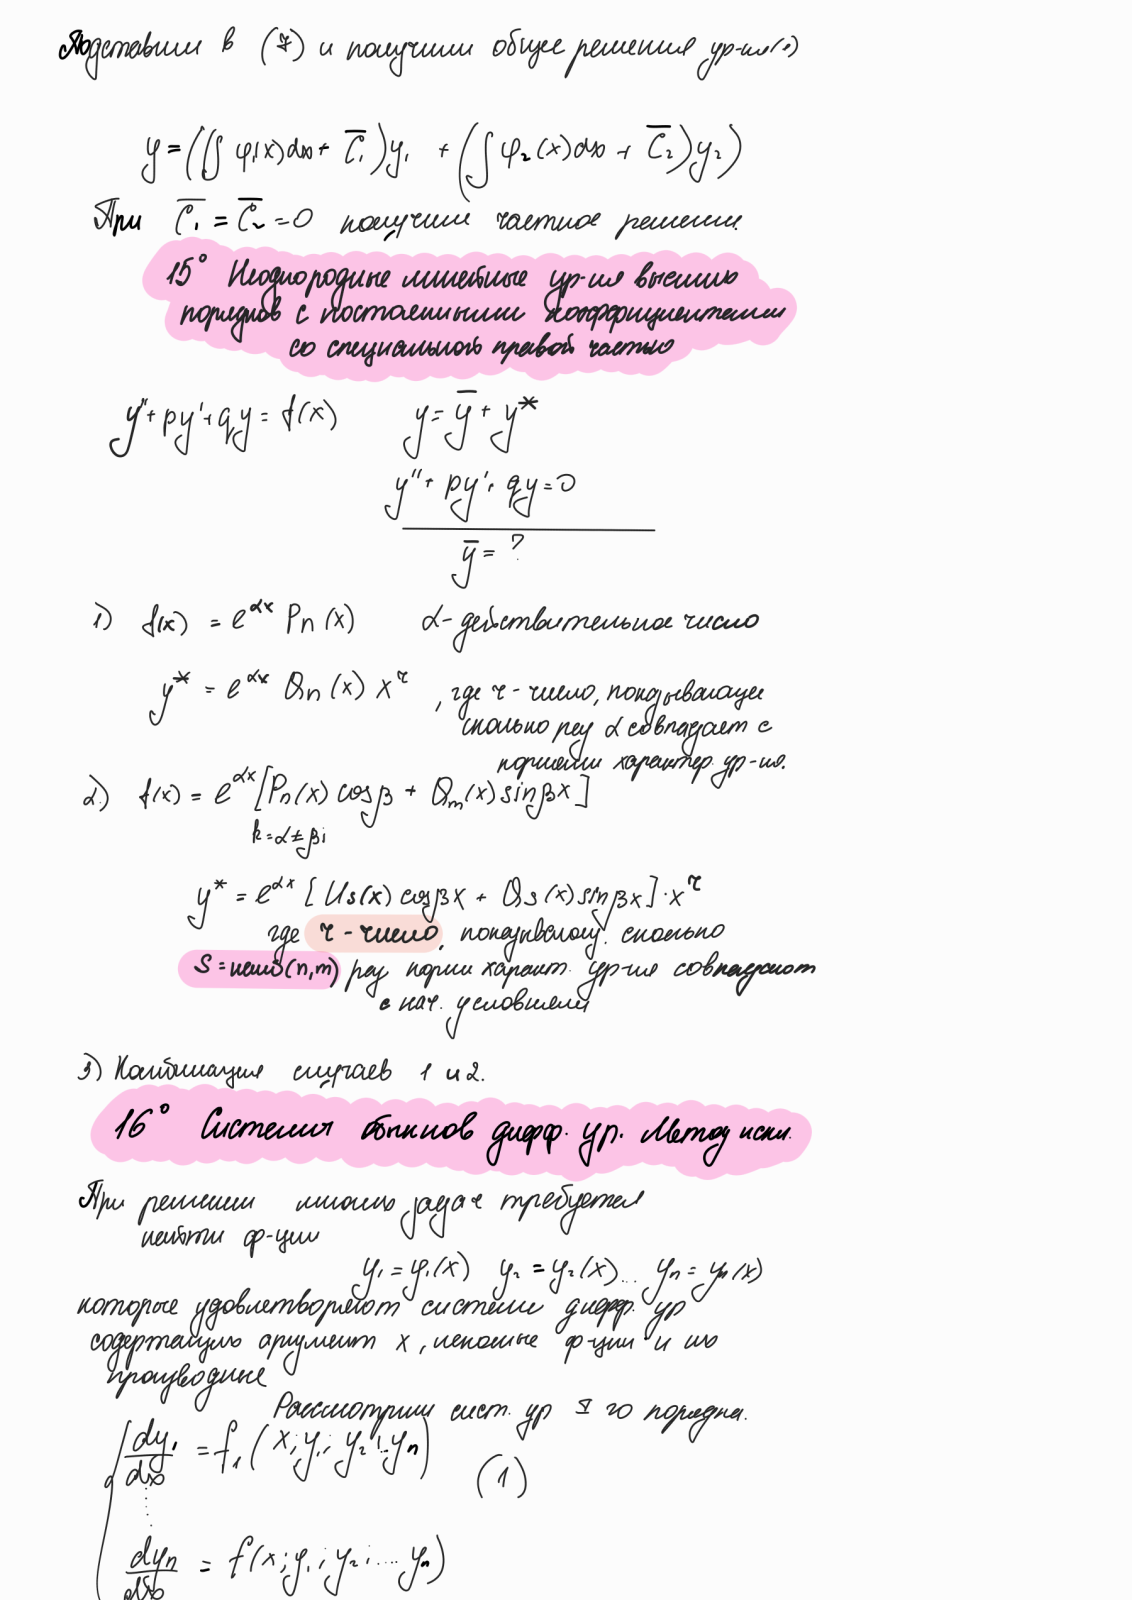 Подставим в (7) и получим общее решения ур-ия(1)
y = ((∫ φ₁(x)dx + C̅₁)y₁ + (∫ φ₂(x)dx + C̅₂)y₂)
При C̅₁ = C̅₂ = 0 получим частное решении.
15° Неоднородные линейные ур-ия высших
порядков с постоянными коэффициентами
со специальной правой частью
y'' + py' + qy = f(x) y = y̅ + y*
y'' + py' + qy = 0
y̅ = ?
1) f(x) = e^{αx} Pn(x) α - действительное число
y* = e^{αx} Qn(x) x^r , где r - число, показывающее
сколько раз α совпадает с
корнями характер. ур-ия.
2) f(x) = e^{αx}[Pn(x) cosβ + Qm(x) sinβx]
k = α ± βi
y* = e^{αx} [Us(x) cosβx + Qs(x) sinβx]·x^r
где r - число, показывающ. сколько
S = наиб(n,m) раз корни характ. ур-ия совпадают
с нач. условиями
3) Комбинация случаев 1 и 2.
16° Системы обыкнов дифф. ур. Метод искл.
При решении многих задач требуется
найти ф-ции
y₁ = y₁(x) y₂ = y₂(x)... yn = yn(x)
которые удовлетворяют системе дифф. ур
содержащую аргумент x, искомые ф-ции и их
производные
Рассмотрим сист. ур I го порядка.
dy₁/dx = f₁(x; y₁; y₂ ... yn) (1)
dyn/dx = f(x; y₁; y₂; ... yn)